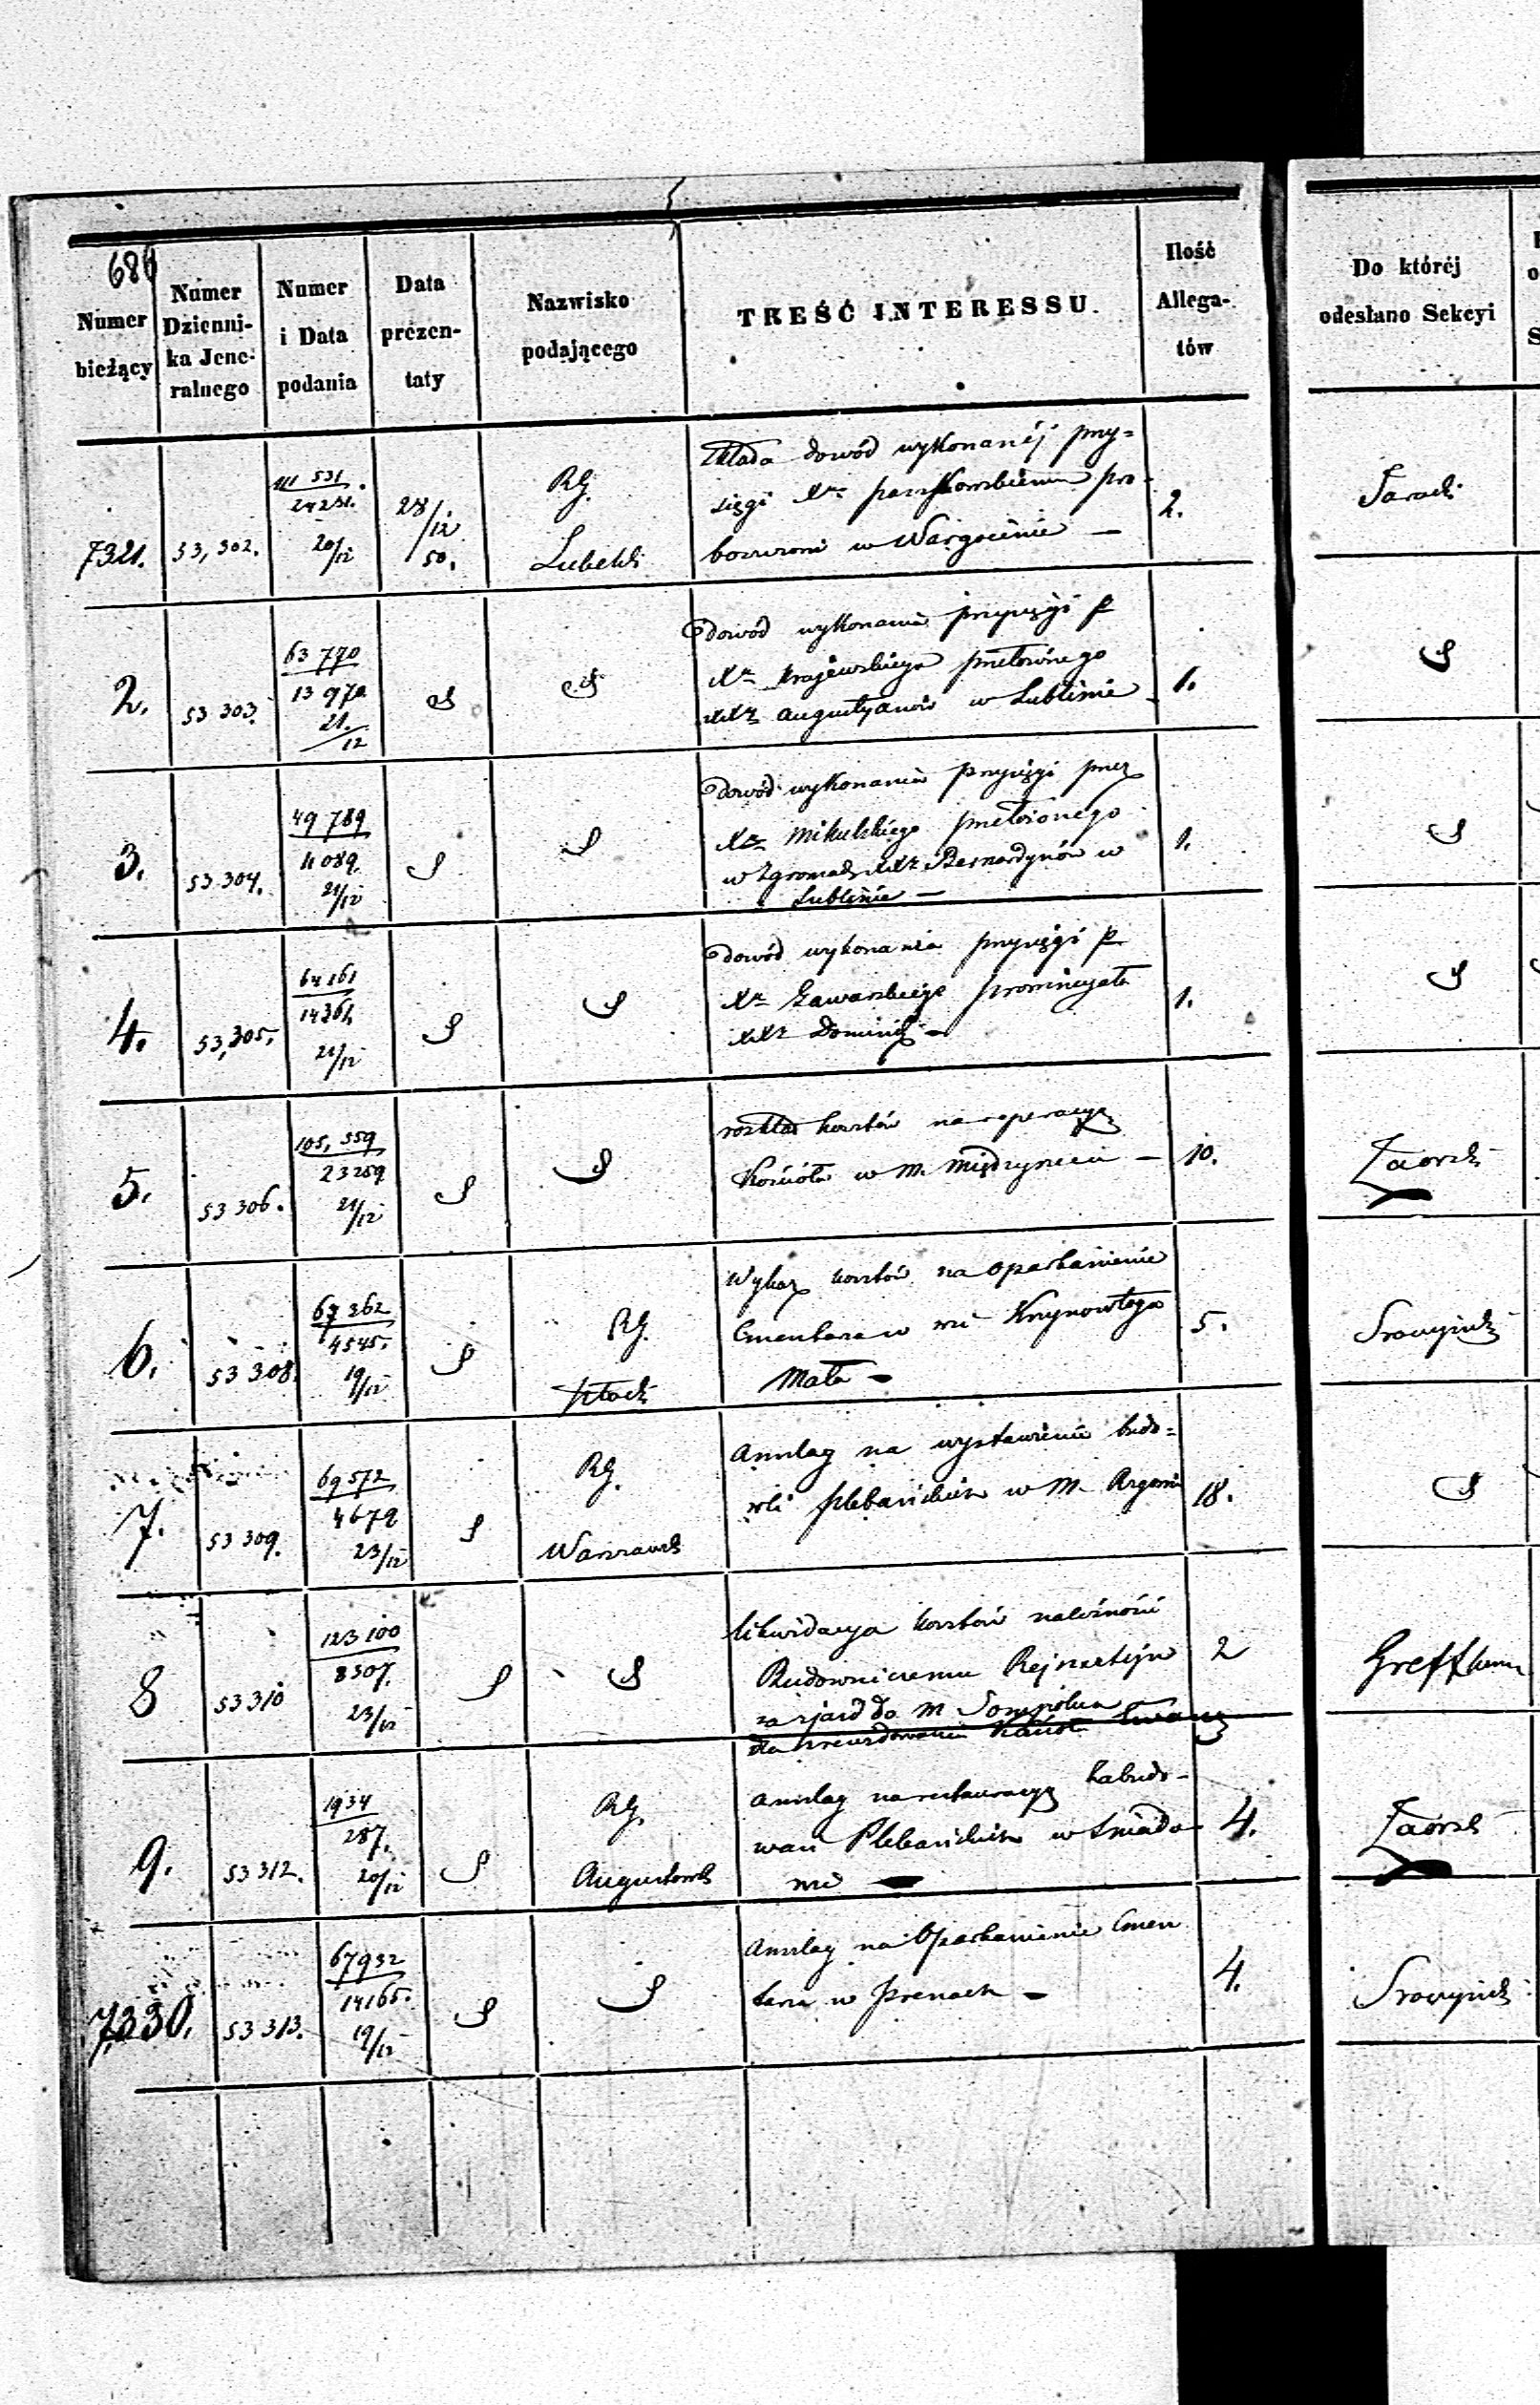 686
Numer bieżący
Numer Dzienni- ka Jene- ralnego
Numer i Data podania
Data prezen- taty
Nazwisko podającego
TREŚĆ INTERESSU.
Ilość Allega- tów
Do któréj odesłano Sekcyi
7321.
53,302.
111 531.
24251.
20/12
28/12
50.
RG.
Lubelski
składa dowód wykonanéj przy=
sięgi Xdz
boszczowi w
2.
2.
53 303.
63 770
13 970
21./12
dowód wykonania przysięgi p
Xdz Krajewskiego przełożonego
XXdz Augustyanów w Lublinie
1.
3.
53 304.
49 789
11 089.
21/12
dowód wykonania przysięgi przez
Xdz Mikulskiego przełożonego
w Zgromadz. XXdz Bernardynów w
Lublinie —
1.
4.
53,305.
64 161
14361.
21/12
dowód wykonania przysięgi p
Xdz prowincyała
XXdz Dominik —
1.
5.
53 306.
105,559
23259
21/12
rozkład kosztów na reperacyę
Kościoła w M. Międzyrzecu —
10.
Zaorski
6.
53 308.
67 262
4545.
19/12
RG.
Płocki
Wykaz kosztów na oparkanienie
Cmentarza w wsi
Mała —
5.
7.
53 309.
69 572
4679
23/12
RG.
Warszawski
Anszlag na wystawienie budo=
wli plebańskich w M.
18.
8
53 310
123 100
8307.
23/12
likwidacya kosztów należności
Budowniczemu
za zjazd do M. Sompolna
dla zrewidowania Kościoła Ewang
2
9.
53 312.
1934
287.
20/12
RG.
Augustowski
anszlag na restauracyę zabudo-
wań Plebańskich w Śniado
wie —
4.
Zaorski
7330.
53 313.
67932
14165.
19/12
Anszlag na Oparkanienie Cmen
tarza w Prenach —
4.